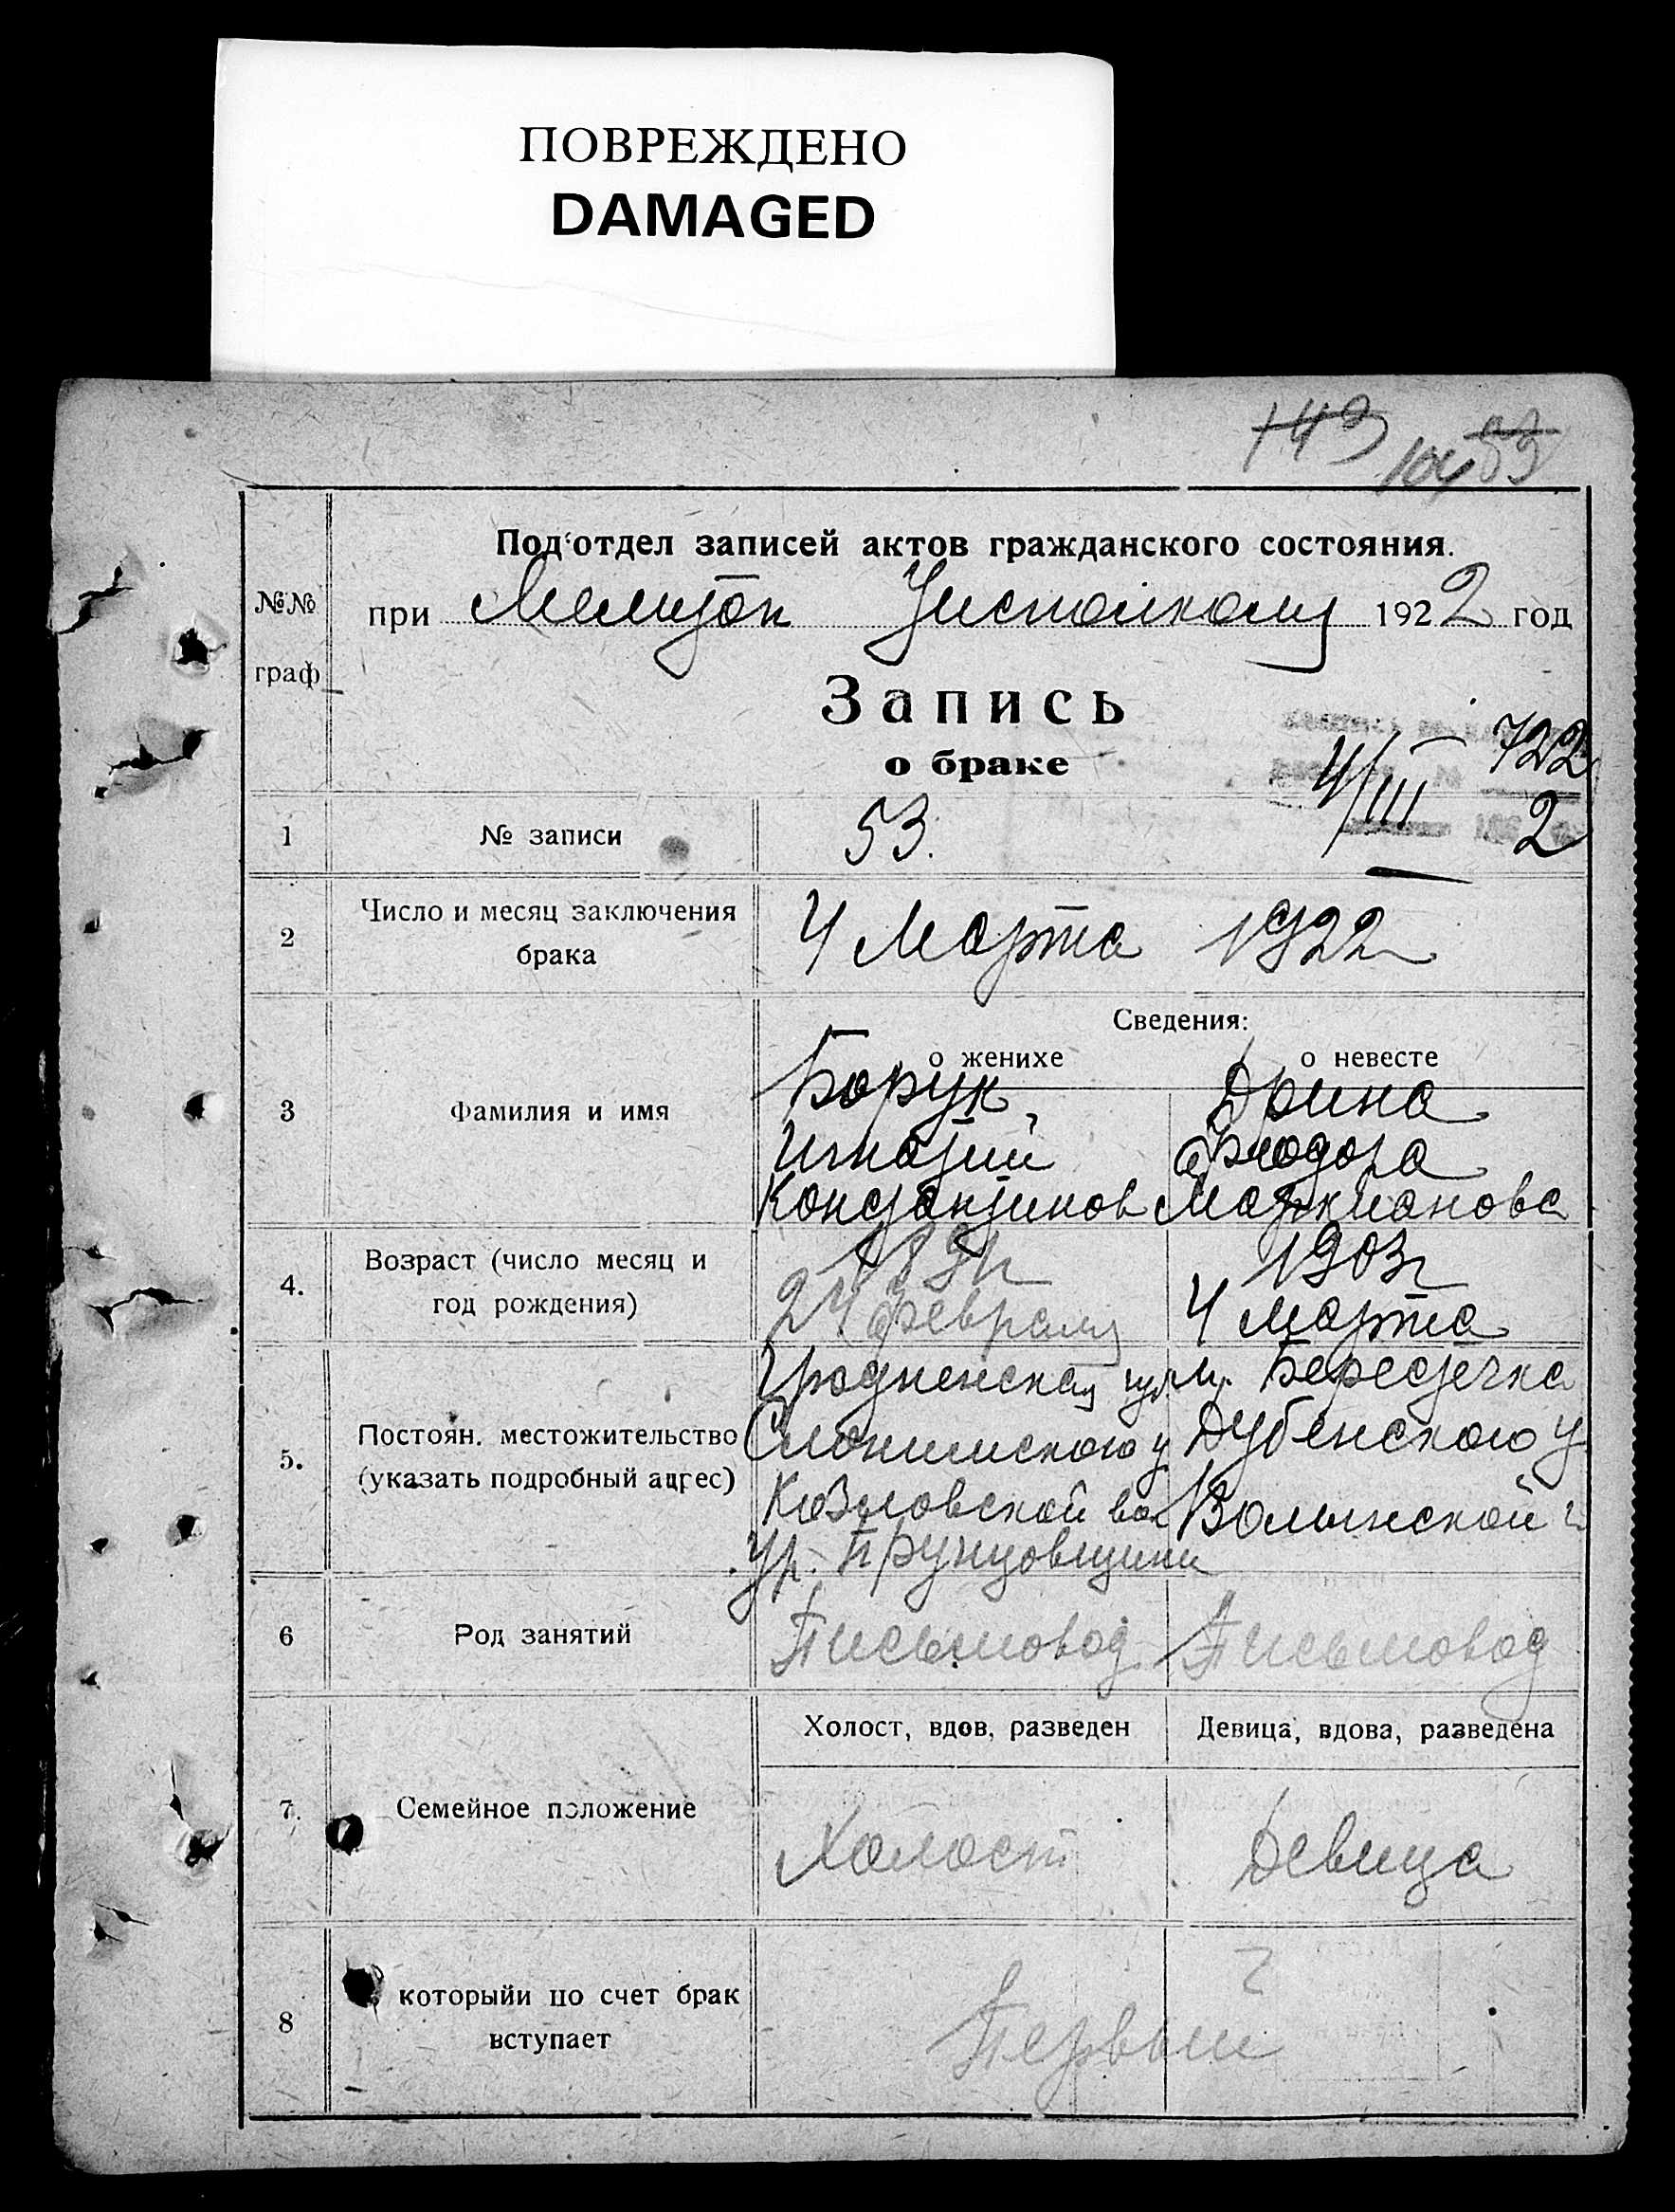 ПОВРЕЖДЕНО
DAMAGED
143 104 53
Под'отдел записей актов гражданского состояния.
№№ граф
при Мелитоп Уисполкому 1922 год
Запись
о браке
4/III 722
2
1 № записи 53.
2 Число и месяц заключения брака 4 Марта 1922
Сведения:
о женихе о невесте
3 Фамилия и имя
Борук, Дрина
Игнатий Феодора
Константинов Маркианова
4. Возраст (число месяц и год рождения)
1903г
24 февраля 4 марта
5. Постоян. местожительство (указать подробный адрес)
Гродненская губ м. Берестечка
Слонимского у Дубенского у
Козловской вол Волынской г
Ур.
6 Род занятий Письмовод Письмовод
Холост, вдов, разведен Девица, вдова, разведена
7. Семейное положение Холост Девица
8 которыйи по счет брак вступает Первый